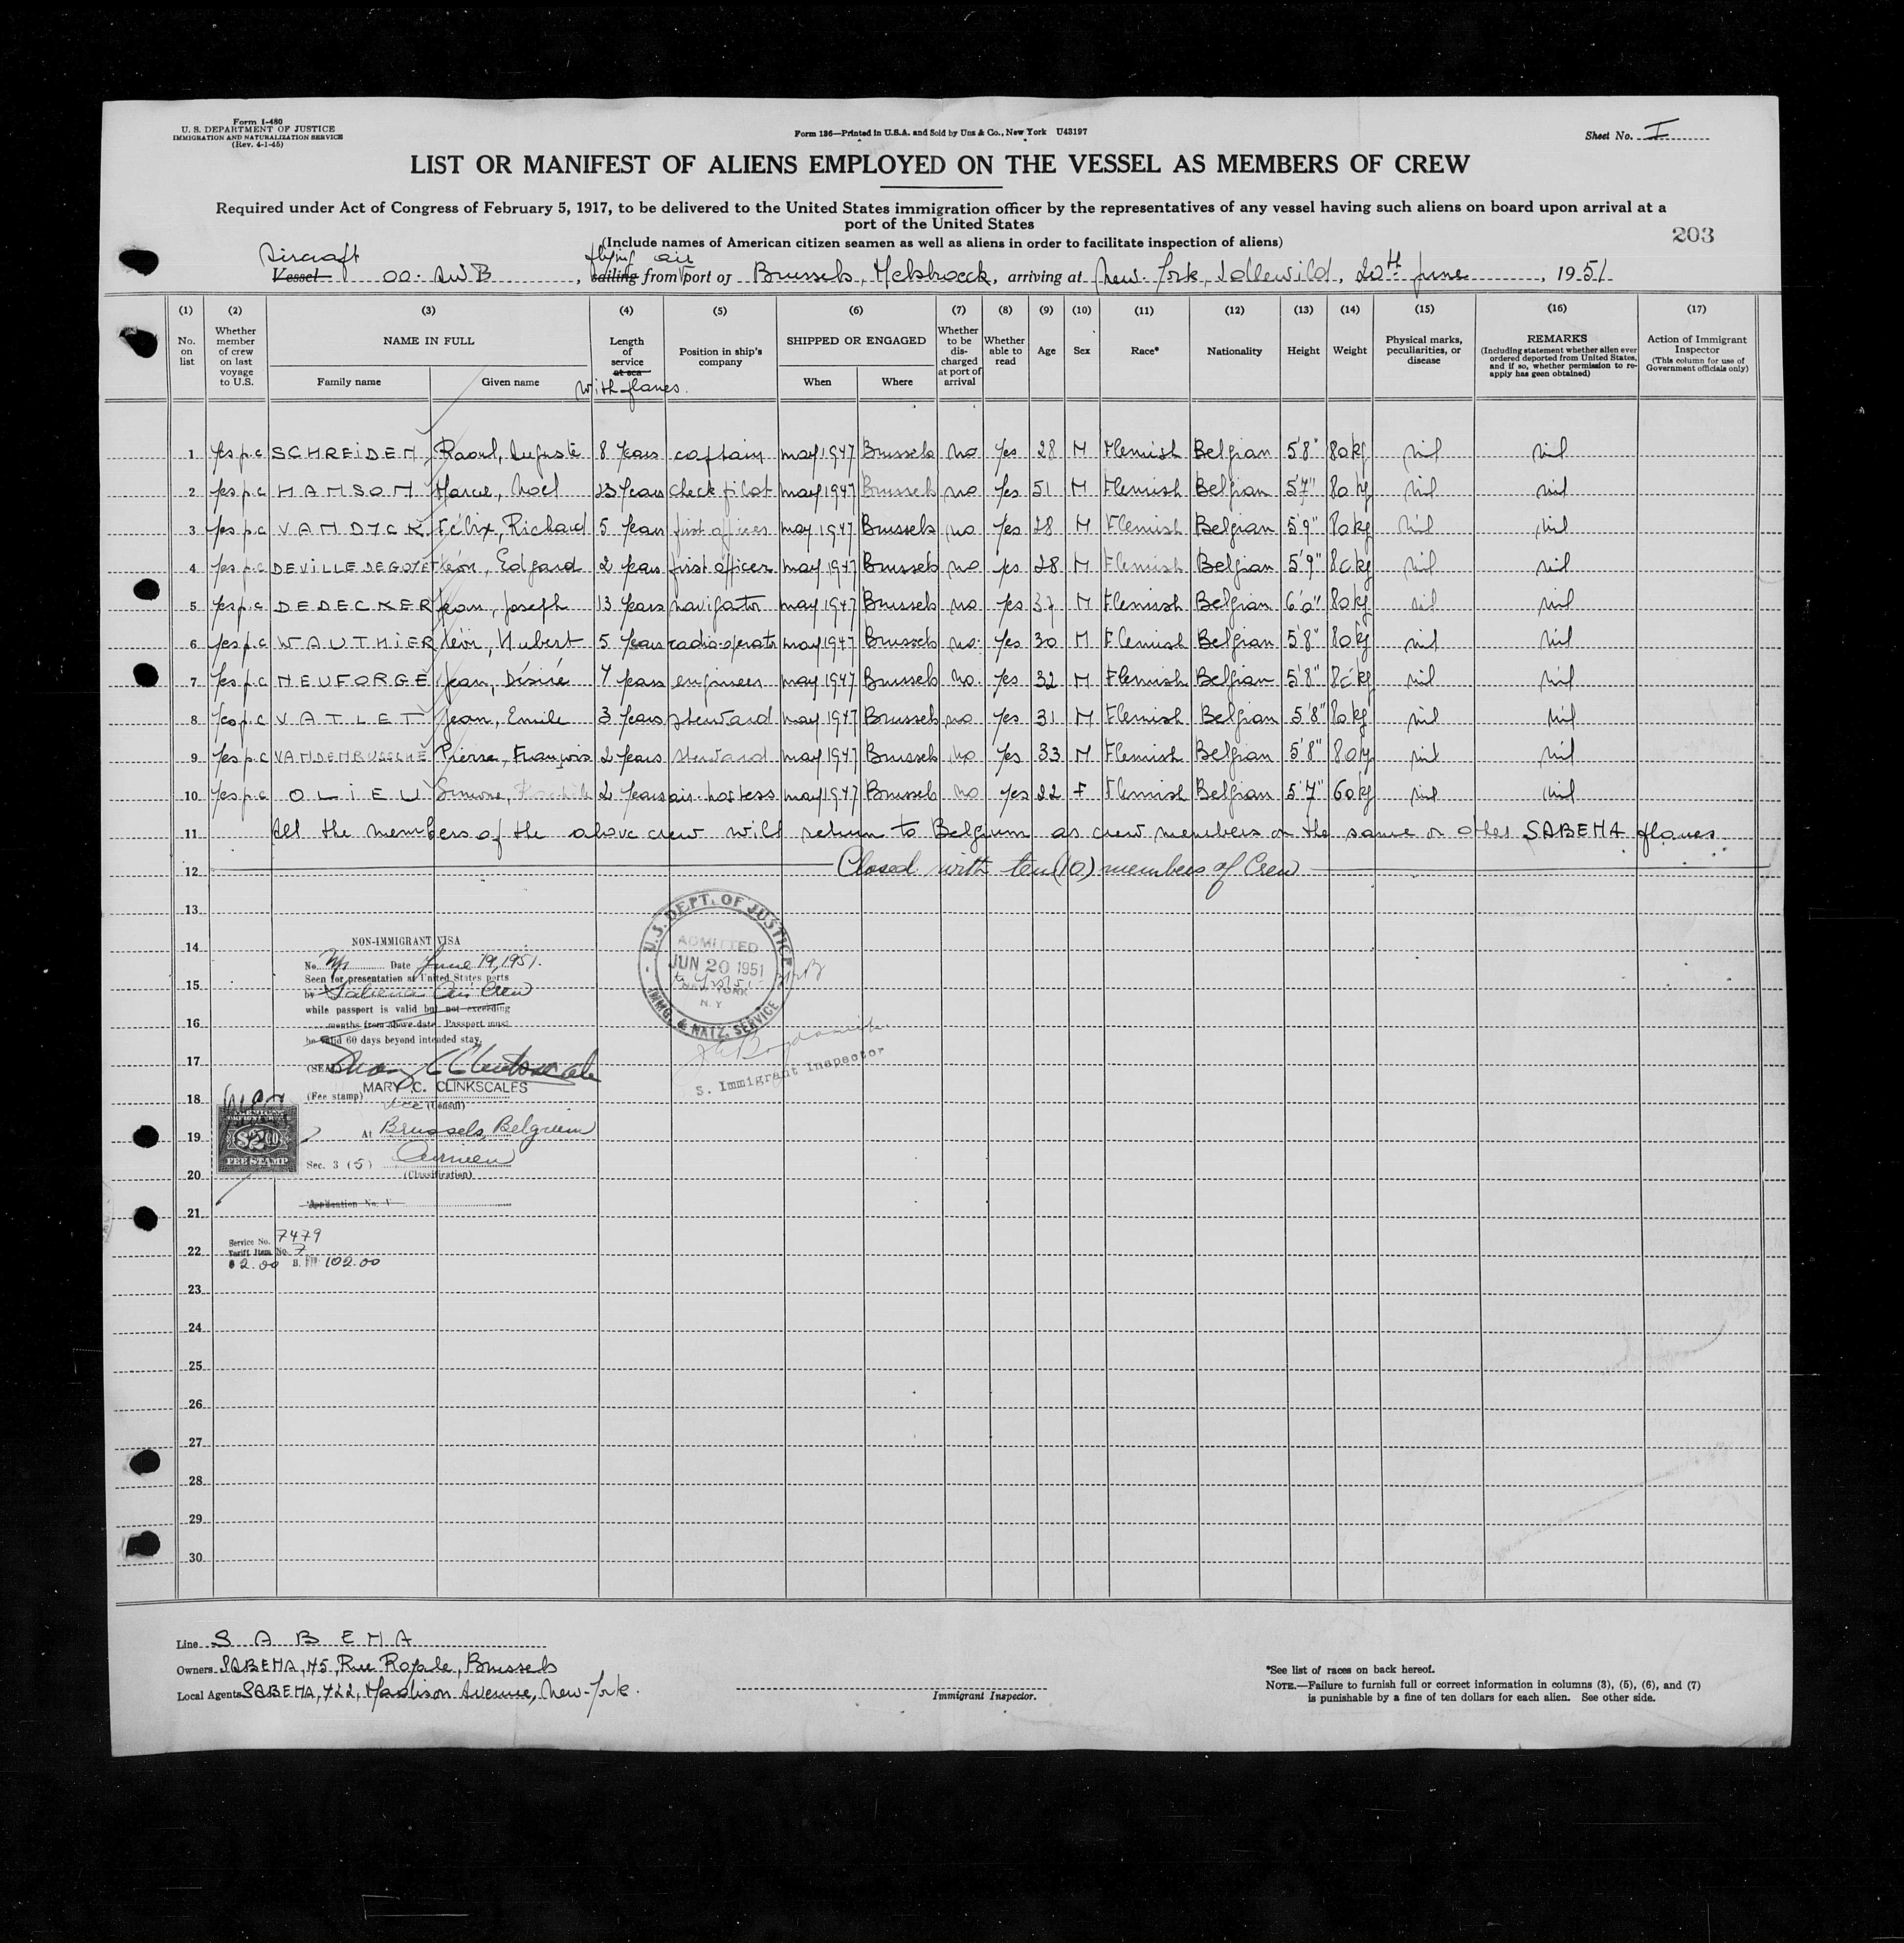 Form I-480
U. S. DEPARTMENT OF JUSTICE
IMMIGRATION AND NATURALIZATION SERVICE
(Rev. 4-1-45)
Form 136—Printed in U.S.A. and Sold by Unz & Co., New York U43197
Sheet No. I
LIST OR MANIFEST OF ALIENS EMPLOYED ON THE VESSEL AS MEMBERS OF CREW
Required under Act of Congress of February 5, 1917, to be delivered to the United States immigration officer by the representatives of any vessel having such aliens on board upon arrival at a
port of the United States
(Include names of American citizen seamen as well as aliens in order to facilitate inspection of aliens)
203
Aircraft flying air
Vessel OO. AWB, sailing from port of Brussels, Melsbroeck, arriving at New-York, Idlewild, 20th June, 1951
(1) (2) (3) (4) (5) (6) (7) (8) (9) (10) (11) (12) (13) (14) (15) (16) (17)
No. on list
Whether member of crew on last voyage to U.S.
NAME IN FULL
Family name Given name
Length of service at sea
with planes.
Position in ship's company
SHIPPED OR ENGAGED
When Where
Whether to be discharged at port of arrival
Whether able to read
Age
Sex
Race*
Nationality
Height
Weight
Physical marks, peculiarities, or disease
REMARKS
(Including statement whether alien ever ordered deported from United States, and if so, whether permission to re-apply has geen obtained)
Action of Immigrant Inspector
(This column for use of Government officials only)
1 Yes p.c SCHREIDEN Raoul, Auguste 8 Years captain may 1947 Brussels no Yes 28 M Flemish Belgian 5'8" 80 kg nil nil
2 Yes p.c HANSON Marcel, Noël 23 Years check pilot may 1947 Brussels no Yes 51 M Flemish Belgian 5'7" 80 kg nil nil
3 Yes p.c VAN DYCK Félix, Richard 5 Years first officer may 1947 Brussels no Yes 28 M Flemish Belgian 5'9" 80 kg nil nil
4 Yes p.c DEVILLE DE GOYET Léon, Edgard 2 Years first officer may 1947 Brussels no yes 28 M Flemish Belgian 5'9" 80 kg nil nil
5 Yes p.c DEDECKER Jean, Joseph 13 Years navigator may 1947 Brussels no Yes 37 M Flemish Belgian 6'0" 80 kg nil nil
6 Yes p.c WAUTHIER Léon, Hubert 5 Years radio-operator may 1947 Brussels no. Yes 30 M Flemish Belgian 5'8" 80 kg nil nil
7 Yes p.c NEUFORGE Jean, Désiré 7 Years engineer may 1947 Brussels no. Yes 32 M Flemish Belgian 5'8" 80 kg nil nil
8 Yes p.c VATLET Jean, Emile 3 Years steward may 1947 Brussels no Yes 31 M Flemish Belgian 5'8" 80 kg nil nil
9 Yes p.c VANDENBUSSCHE Pierre, François 2 Years steward may 1947 Brussels no Yes 33 M Flemish Belgian 5'8" 80 kg nil nil
10 Yes p.c OLIEU Simone, 2 Years air-hostess may 1947 Brussels no Yes 22 F Flemish Belgian 5'7" 60 kg nil nil
11 All the members of the above crew will return to Belgium as crew members on the same or other SABENA planes
12 Closed with ten (10) members of Crew
13
14
15
16
17
18
19
20
21
22
23
24
25
26
27
28
29
30
NON-IMMIGRANT VISA
No. Date June 19, 1951.
Seen for presentation at United States ports
by Sabena Air Crew
while passport is valid but not exceeding
months from above date. Passport must
be valid 60 days beyond intended stay.
(SEAL) Mary C Clinkscales
MARY C. CLINKSCALES
(Fee stamp) Vice (Consul)
At Brussels, Belgium
Sec. 3 (5) Airmen
(Classification)
Application No. V
AMERICAN
FOREIGN SERVICE
$2.00
FEE STAMP
Service No. 7479
Tariff Item No. 7
$ 2.00 B. Fr. 102.00
U.S. DEPT. OF JUSTICE
ADMITTED
JUN 20 1951
NEW YORK
N.Y
IMMG. & NATZ. SERVICE
S. Immigrant Inspector
Line SABENA
Owners SABENA, 45, Rue Royale, Brussels
Local Agents SABENA, 422, Madison Avenue, New-York.
Immigrant Inspector.
*See list of races on back hereof.
NOTE.—Failure to furnish full or correct information in columns (3), (5), (6), and (7)
is punishable by a fine of ten dollars for each alien. See other side.